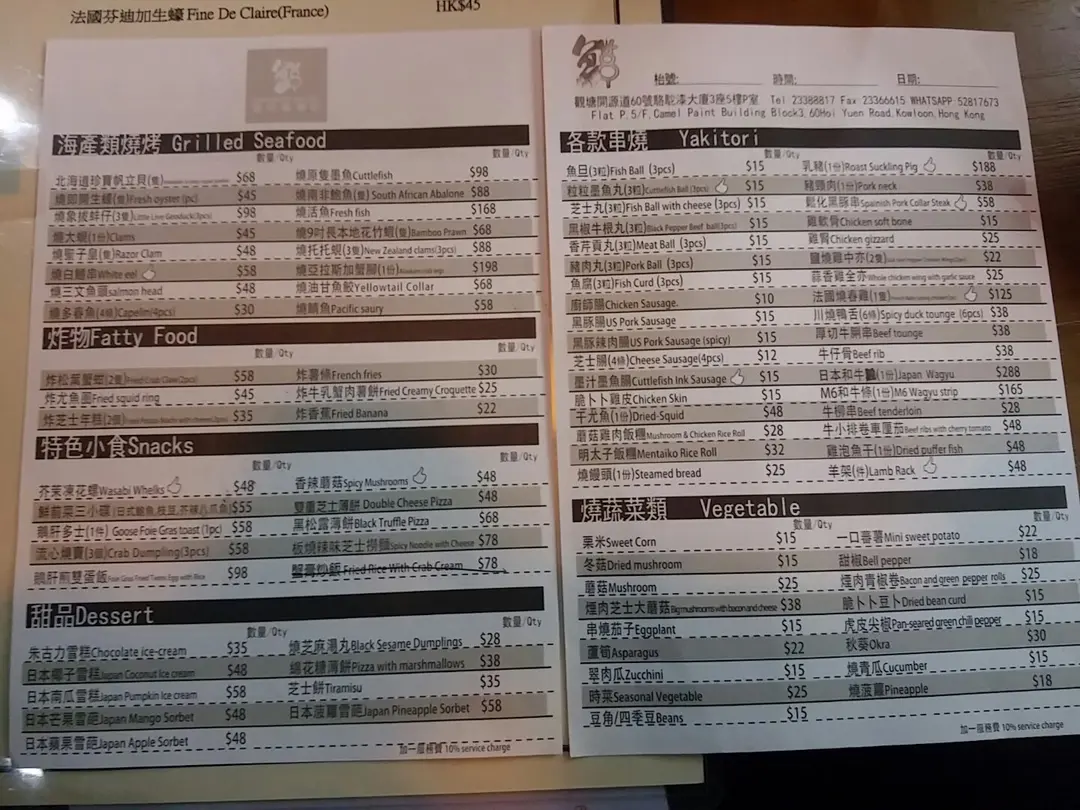 法國芬迪加生蠔 Fine De Claire(France) HK$45
海產類燒烤 Grilled Seafood
數量/Qty 數量/Qty
北海道珍寶帆立貝(隻) $68 燒原隻墨魚Cuttlefish $98
燒即開生蠔(隻)Fresh oyster (pc) $45 燒南非鮑魚(隻) South African Abalone $88
燒象拔蚌仔(3隻)Little Live Geoduck(3pcs) $98 燒活魚Fresh fish $168
燒大蜆(1份)Clams $45 燒9吋長本地花竹蝦(隻)Bamboo Prawn $68
燒聖子皇(隻)Razor Clam $48 燒托托蜆(3隻)New Zealand clams(3pcs) $88
燒白鱔串White eel $58 燒亞拉斯加蟹腳(1份) $198
燒三文魚頭salmon head $48 燒油甘魚鮫Yellowtail Collar $68
燒多春魚(4條)Capelin(4pcs) $30 燒鯖魚Pacific saury $58
炸物Fatty Food
數量/Qty 數量/Qty
炸松葉蟹鉗(2隻)Fried Crab Claw(2pcs) $58 炸薯條French fries $30
炸尤魚圈Fried squid ring $45 炸牛乳蟹肉薯餅Fried Creamy Croquette $25
炸芝士年糕(2個) $35 炸香蕉Fried Banana $22
特色小食Snacks
數量/Qty 數量/Qty
芥茉凍花螺Wasabi Whelks $48 香辣蘑菇Spicy Mushrooms $48
鮮前菜三小碟(日式鮑魚,枝豆,芥辣八爪魚) $55 雙重芝士薄餅 Double Cheese Pizza $48
鵝肝多士(1件) Goose Foie Gras toast (1pc) $58 黑松露薄餅Black Truffle Pizza $68
流心燒賣(3個)Crab Dumpling(3pcs) $58 板燒辣味芝士撈麵Spicy Noodle with Cheese $78
鵝肝煎雙蛋飯Foie Gras Fried Twins Egg with Rice $98 蟹膏炒飯Fried Rice With Crab Cream $78
甜品Dessert
數量/Qty 數量/Qty
朱古力雪糕Chocolate ice-cream $35 燒芝麻湯丸Black Sesame Dumplings $28
日本椰子雪糕Japan Coconut Ice cream $48 綿花糖薄餅Pizza with marshmallows $38
日本南瓜雪糕Japan Pumpkin Ice cream $58 芝士餅Tiramisu $35
日本芒果雪葩Japan Mango Sorbet $48 日本菠蘿雪葩Japan Pineapple Sorbet $58
日本蘋果雪葩Japan Apple Sorbet $48
加一服務費 10% service charge
鮮
枱號: 時間: 日期:
觀塘開源道60號駱駝漆大廈3座5樓P室 Tel 23388817 Fax 23366615 WHATSAPP 52817673
Flat P, 5/F, Camel Paint Building Block3, 60Hoi Yuen Road, Kowloon, Hong Kong
各款串燒 Yakitori
數量/Qty 數量/Qty
魚旦(3粒)Fish Ball (3pcs) $15 乳豬(1份)Roast Suckling Pig $188
粒粒墨魚丸(3粒)Cuttlefish Ball (3pcs) $15 豬頸肉(1份)Pork neck $38
芝士丸(3粒)Fish Ball with cheese (3pcs) $15 鬆化黑豚串Spainish Pork Collar Steak $58
黑椒牛根丸(3粒)Black Pepper Beef ball(3pcs) $15 雞軟骨Chicken soft bone $15
香芹貢丸(3粒)Meat Ball (3pcs) $15 雞腎Chicken gizzard $25
豬肉丸(3粒)Pork Ball (3pcs) $15 鹽燒雞中亦(2隻) $22
魚腐(3粒)Fish Curd (3pcs) $15 蒜香雞全亦Whole chicken wing with garlic sauce $25
廚師腸Chicken Sausage. $10 法國燒春雞(1隻) $125
黑豚腸US Pork Sausage $15 川燒鴨舌(6條)Spicy duck tounge (6pcs) $38
黑豚辣肉腸US Pork Sausage (spicy) $15 厚切牛脷串Beef tounge $38
芝士腸(4條)Cheese Sausage(4pcs) $12 牛仔骨Beef rib $38
墨汁墨魚腸Cuttlefish Ink Sausage $15 日本和牛(1份)Japan Wagyu $288
脆卜卜雞皮Chicken Skin $15 M6和牛條(1份)M6 Wagyu strip $165
干尤魚(1份)Dried-Squid $48 牛柳串Beef tenderloin $28
蘑菇雞肉飯糰Mushroom & Chicken Rice Roll $28 牛小排卷車厘茄Beef ribs with cherry tomato $48
明太子飯糰Mentaiko Rice Roll $32 雞泡魚干(1份)Dried puffer fish $48
燒饅頭(1份)Steamed bread $25 羊架(件)Lamb Rack $48
燒蔬菜類 Vegetable
數量/Qty 數量/Qty
粟米Sweet Corn $15 一口番薯Mini sweet potato $22
冬菇Dried mushroom $15 甜椒Bell pepper $18
蘑菇Mushroom $25 煙肉青椒卷Bacon and green pepper rolls $25
煙肉芝士大蘑菇Big mushrooms with bacon and cheese $38 脆卜卜豆卜Dried bean curd $15
串燒茄子Eggplant $15 虎皮尖椒Pan-seared green chili pepper $15
蘆筍Asparagus $22 秋葵Okra $30
翠肉瓜Zucchini $15 燒青瓜Cucumber $15
時菜Seasonal Vegetable $25 燒菠蘿Pineapple $18
豆角/四季豆Beans $15
加一服務費 10% service charge